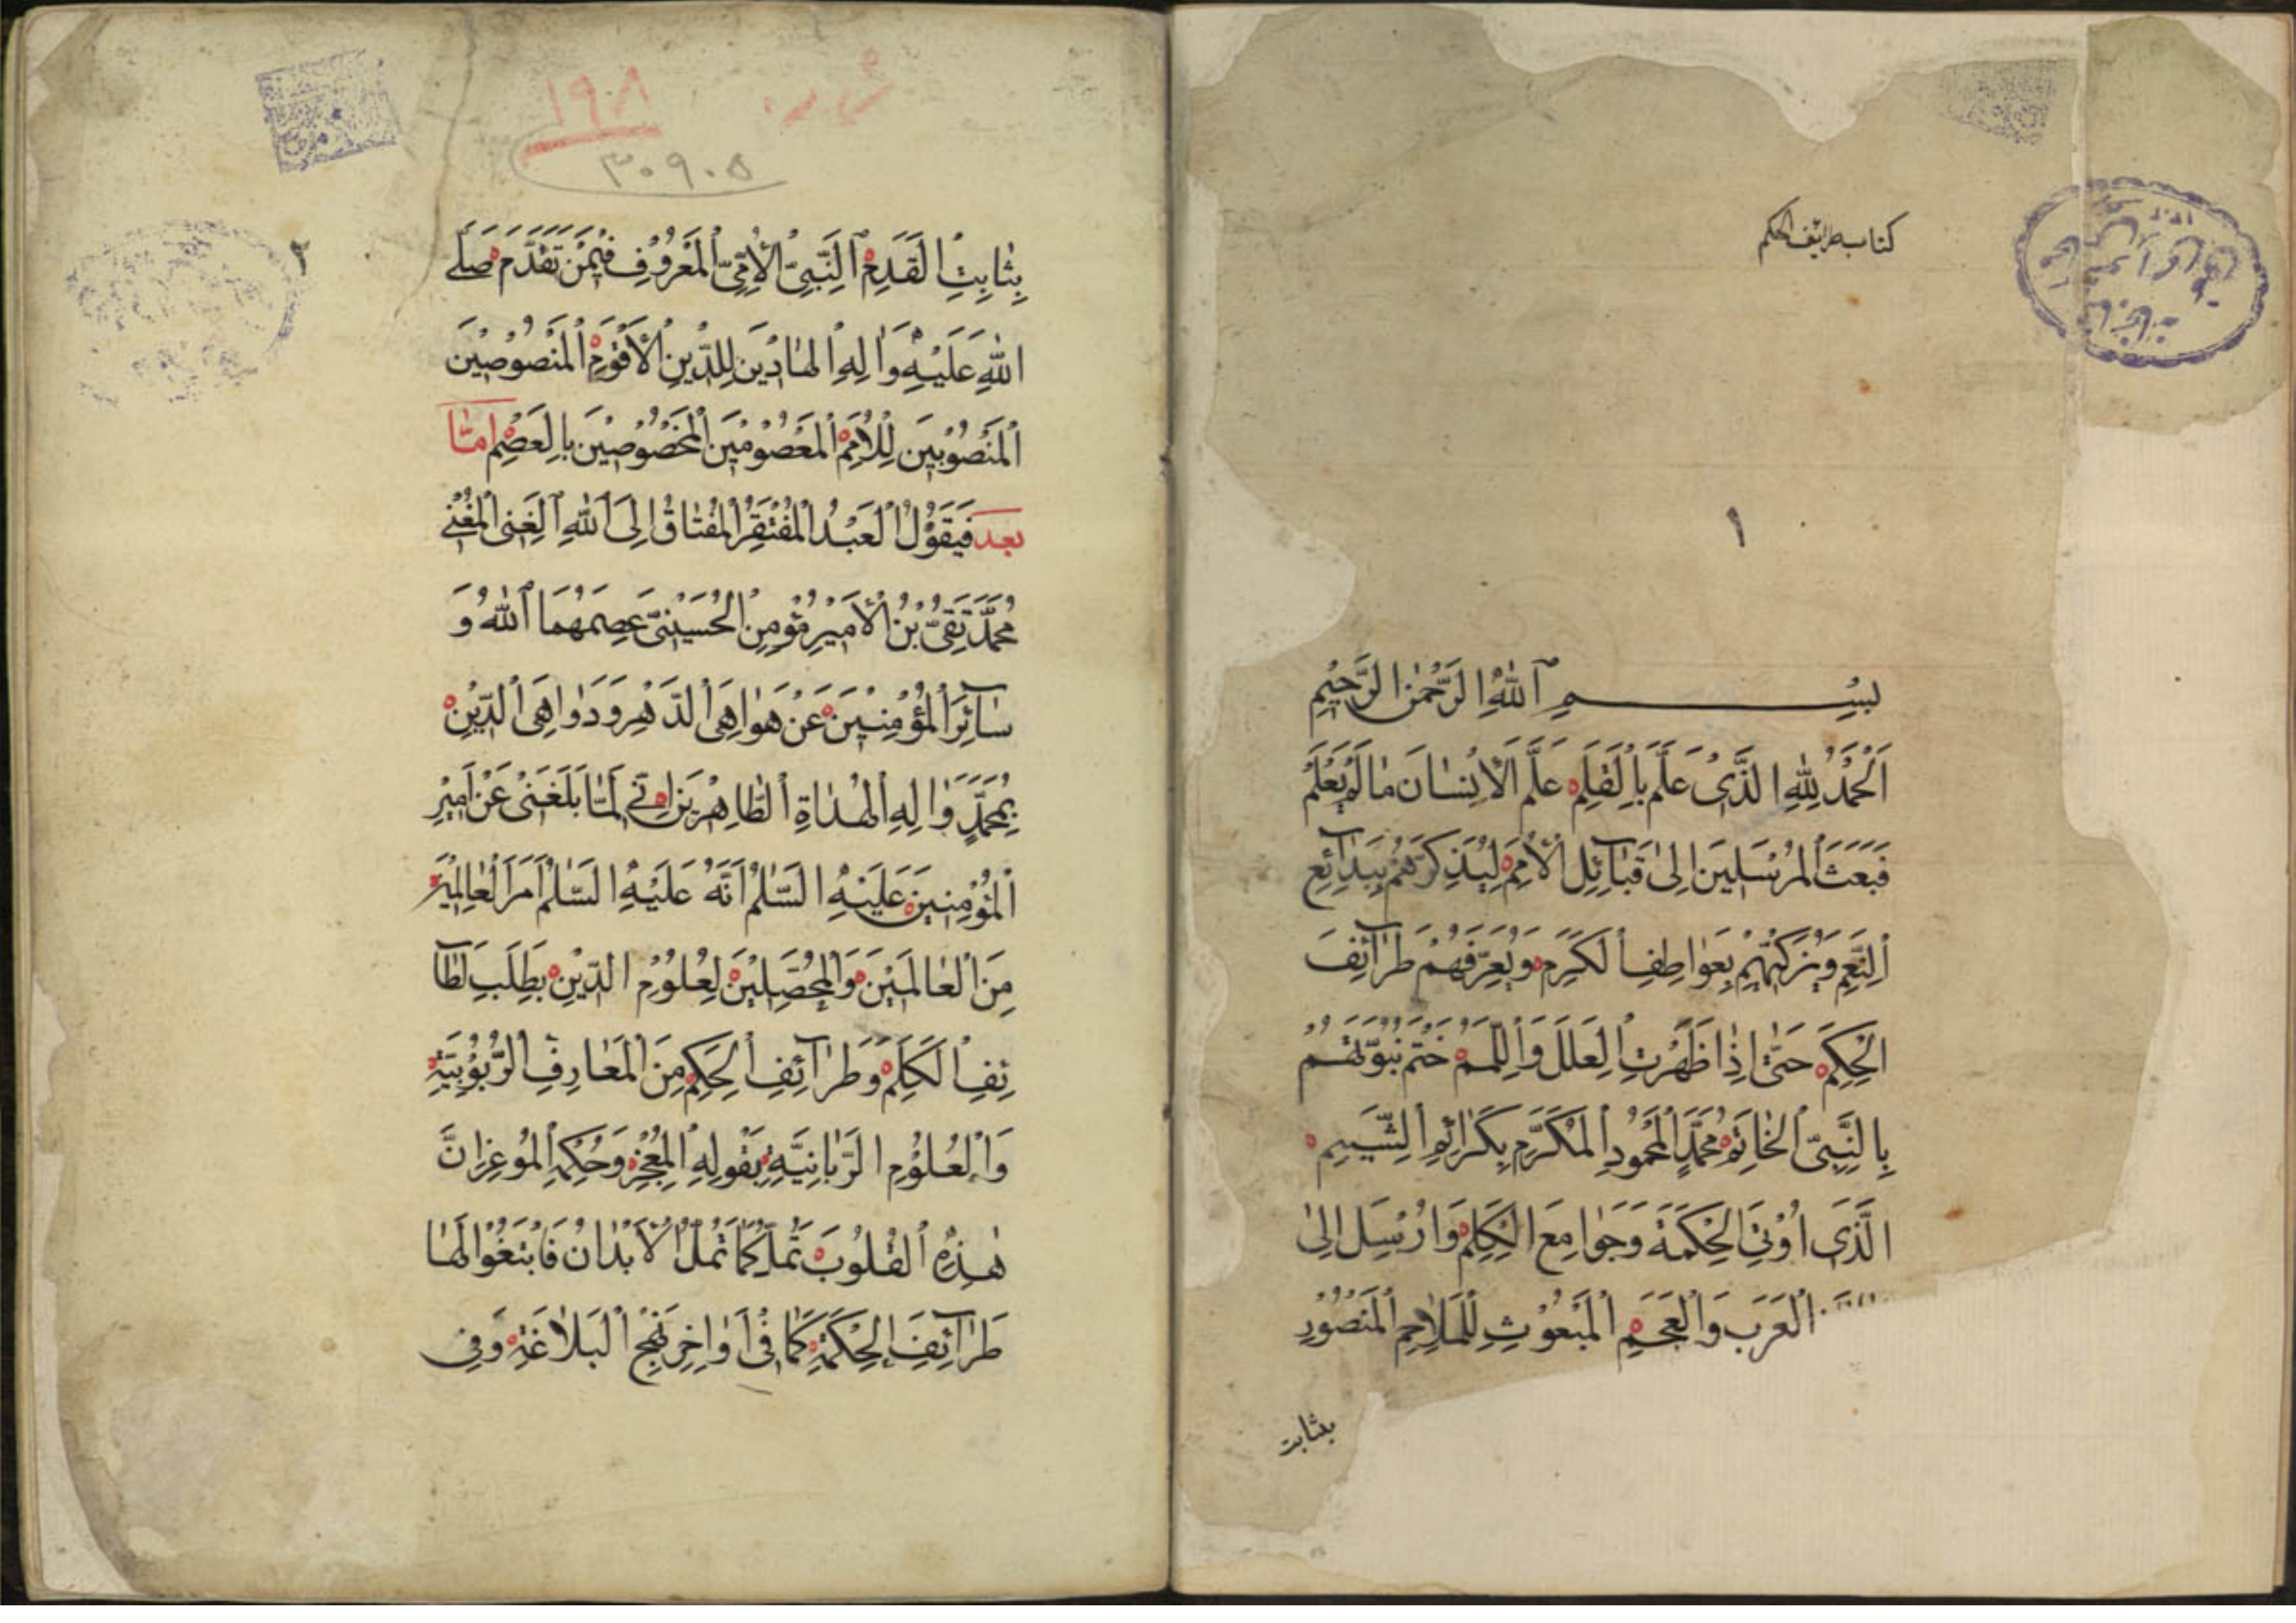 كتاب طرايف الحكم
١
بِسْمِ ٱللّٰهِ الرَّحْمٰنِ الرَّحِيْمِ
اَلْحَمْدُ لِلّٰهِ الَّذَّىْ عَلَّمَ بِاْلقَلَمِ عَلَّمَ الْاِنْسٰانَ مٰا لَمْ يَعْلَمْ
فَبَعَثَ الْمُرْسَلِيْنَ اِلىٰ قَبٰآئِلِ الْاُمَمِ لِيُذَكِّرَهُمْ بِبَدٰآئِعِ
اْلنِّعَمِ وَيُزَكِّيَهُمْ بِعَوٰاطِفِ اْلكَرَمِ وَيُعَرِّفَهُمْ طَرٰآئِفَ
الْحِكَمِ حَتّٰى اِذٰا ظَهَرَتِ اْلعِلَلُ وَاْللَّمَمُ خَتَمَ نُبُوَّتَهُمْ
بِالنَّبِىِّ الْخٰاتَمِ مُحَمَّدٍ الْمَحْمُودِ الْمُكَرَّمِ بِكَرٰائِمِ الشِّيَمِ
الَّذَى اُوْتِىَ الْحِكْمَةَ وَجَوٰامِعَ الْكَلِمِ وَاُرْسِلَ اِلىٰ
الْعَرَبِ وَالْعَجَمِ الْمَبْعُوْثِ لِلْمَلٰاحِمِ الْمَنْصُوْرِ
بثابت
١٩٨
٣٠٩٠٥
٢
بِثٰابِتِ الْقَدَمِ ٱلنَّبِىِّ الْاُمِّىِّ الْمَعْرُوْفِ فِيْمَنْ تَقَدَّمَ صَلَّى
اللّٰهِ عَلَيْهِ وَاٰلِهِ الْهٰادِيْنَ لِلدِّيْنِ الْاَقْوَمِ الْمَنْصُوْصِيْنَ
اْلمَنْصُوْبِيْنَ لِلْاُمَمِ الْمَعْصُوْمِيْنَ الْمَخْصُوْصِيْنَ بِالْعِصَمِ امّٰا
بعد فَيَقُوْلُ الْعَبْدُ الْمُفْتَقِرُ الْمُفْتٰاقُ اِلَى ٱللّٰهِ ٱلْغَنِىِّ الْمُغْنِى
مُحَمَّدْ تَقِىُّ بْنُ الْاَمِيْرِ مُؤْمِنِ الْحُسَيْنِىِّ عَصِمَهُمَا ٱللّٰهُ وَ
سٰآئِرَ الْمُؤْمِنِيْنَ عَنْ هَوٰاهِى الدَّهْرِ وَدَوٰاهِى الدِّيْنِ
بِمُحَمَّدٍ وَاٰلِهِ الْهُدٰاةِ الطّٰاهِرْيِنَ اِنِّى لَمّٰا بَلَغَنِىْ عَنْ اَمِيْرِ
الْمُؤْمِنِيْنَ عَلَيْهِ السَّلٰمُ اَنَّهُ عَلَيْهِ السَّلٰمُ اَمَرَ الْعٰالِمِيْنَ
مِنَ الْعٰالَمِيْنَ وَالْمُحَصِّلِيْنَ لِعُلُوْمِ الدِّيْنِ بِطَلَبِ لَطٰآ
ئِفِ الْكَلِمِ وَطَرٰآئِفِ الْحِكَمِ مِنَ الْمَعٰارِفِ الرُّبُوْبِيَّةِ
وَالْعُلُوْمِ الرَّبّٰانِيَّةِ بِقَوْلِهِ الْمُعْجِزِ وَحُكْمِهِ الْمُوْعِزِ اِنَّ
هٰذِهِ الْقُلُوْبَ تَمَلُّ كَمٰا تَمَلُّ الْاَبْدٰانُ فَابْتَغُوْا لَهٰا
طَرٰآئِفَ الْحِكْمَةِ كَمٰا فِىْ اَوٰاخِرِ نَهْجِ الْبَلٰاغَةِ وَفِى